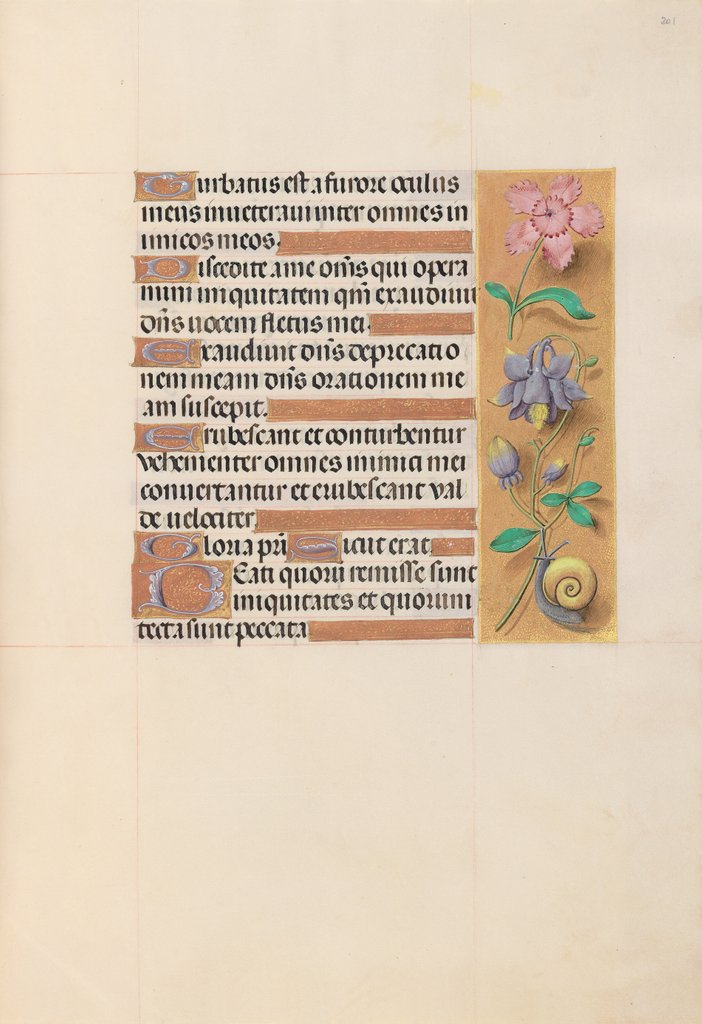 201
Turbatus est a furore oculus
meus inueteraui inter omnes in
imicos meos.
Discedite a me om̄s qui opera
mini iniquitatem qm̄ exaudiuit
dn̄s uocem fletus mei.
Exaudiuit dn̄s deprecatio
nem meam dn̄s orationem me
am suscepit.
Erubescant et conturbentur
vehementer omnes inimici mei
conuertantur et erubescant val
de uelociter.
Gloria pr̄i Sicut erat.
Beati quorū remisse sunt
iniquitates et quorum
tecta sunt peccata